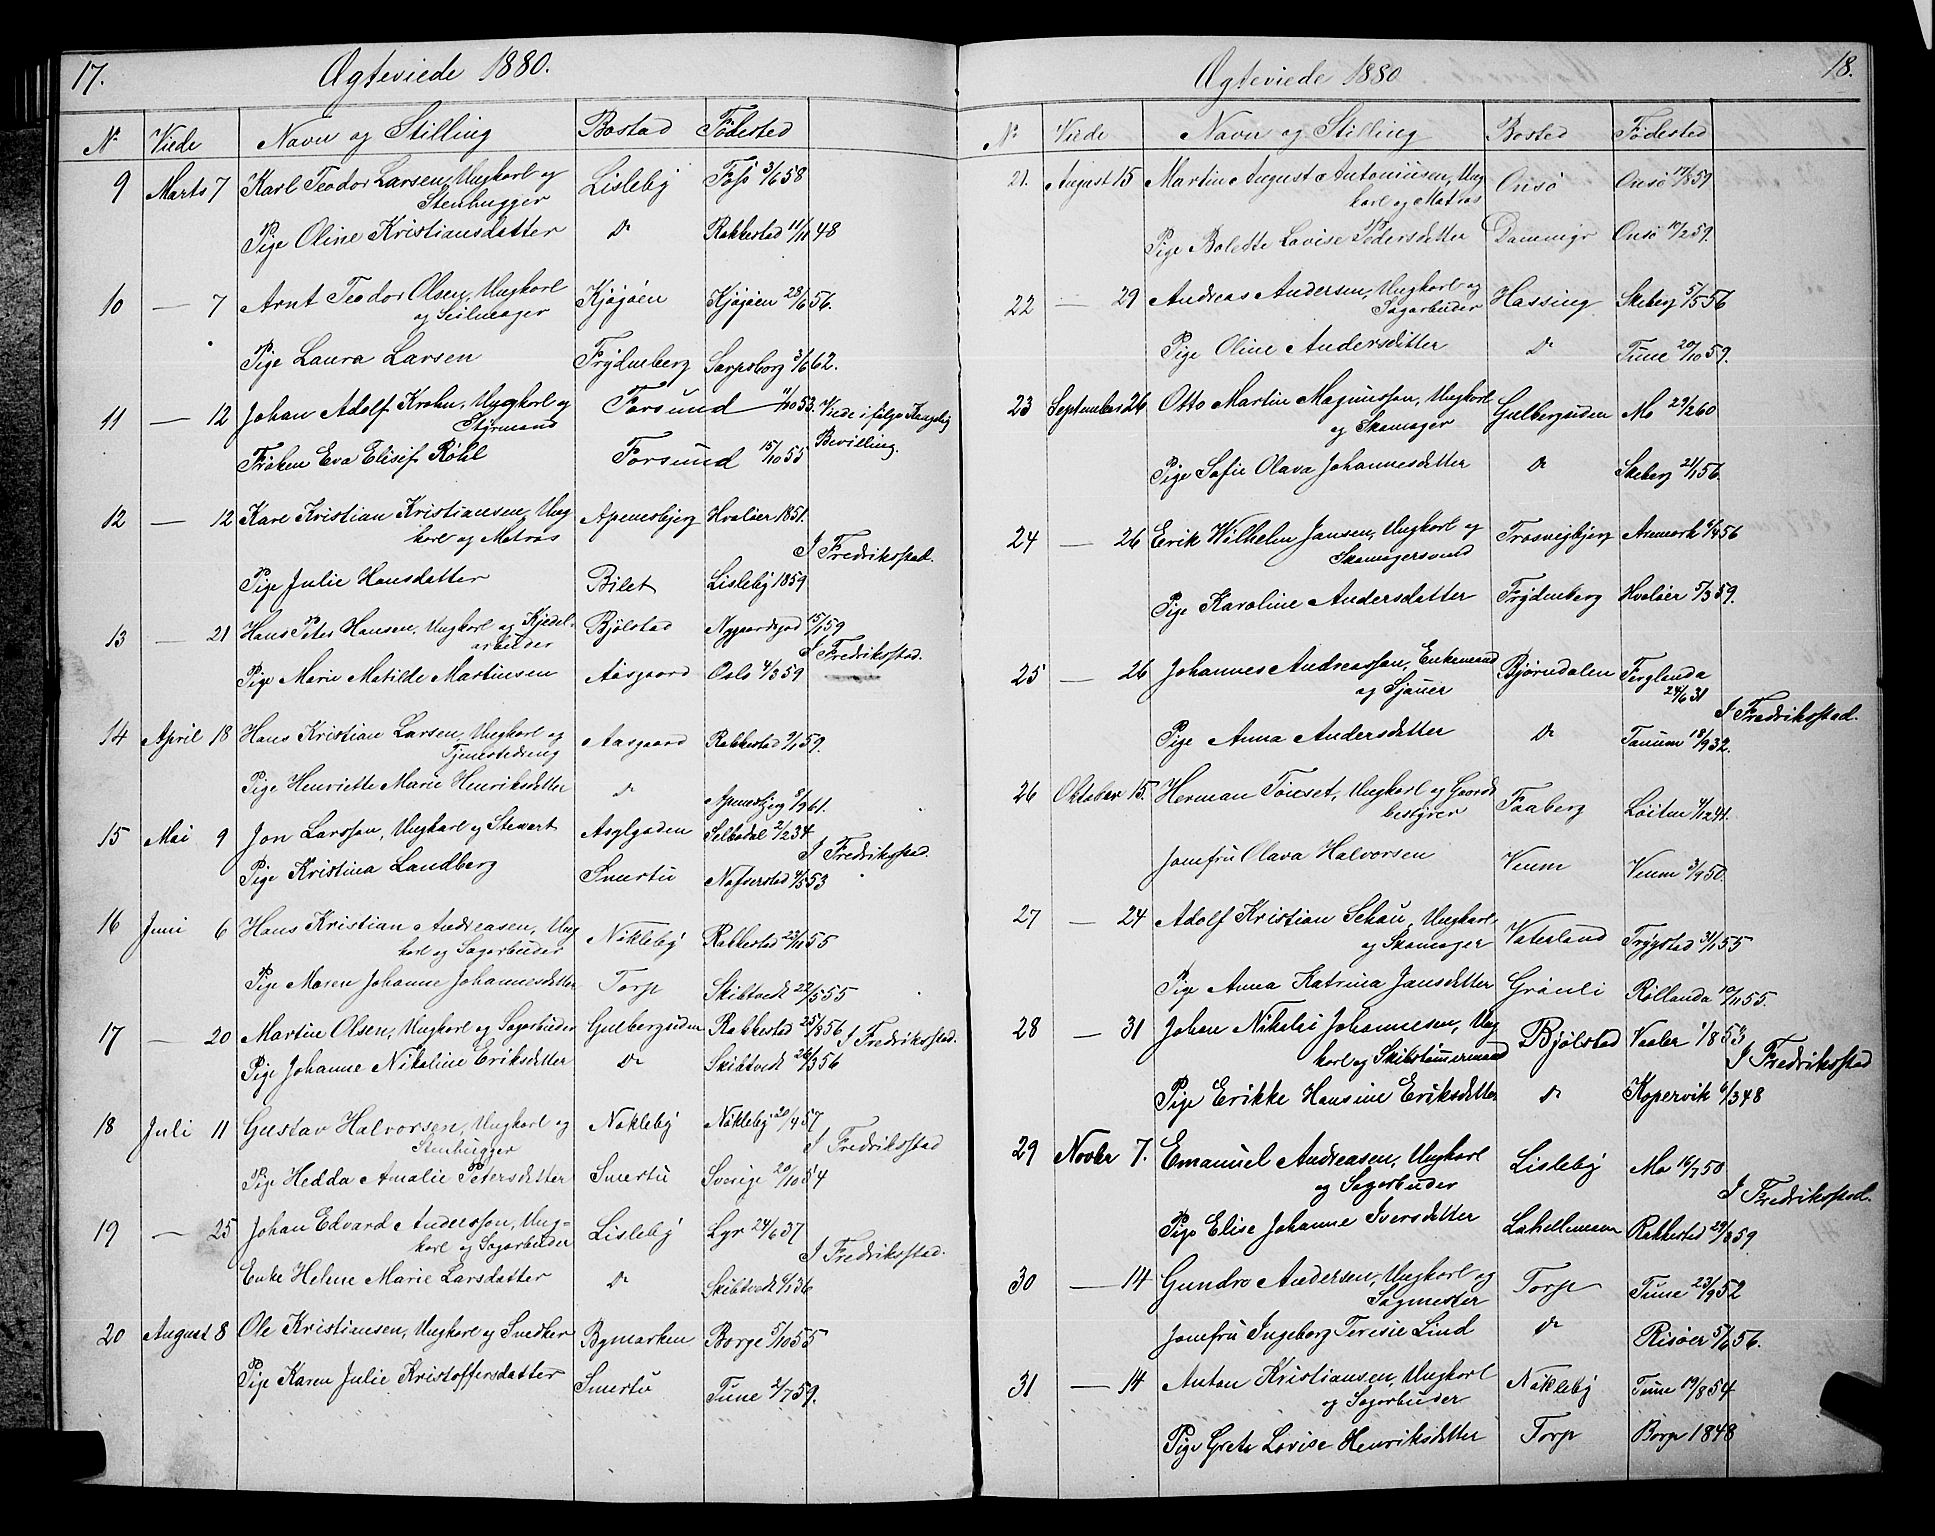 17. Ægteviede 1880.
No Viede Navn og Stilling Bostad Födested
9 Marts 7 Karl Teodor Larsen, Ungkarl og Lisleby 3/6 58
Stenhugger
Pige Oline Kristiansdatter Do Rakkestad 11/11 48
10 — 7 Arnt Teodor Olsen, Ungkarl Kjöjöen Kjöjöen 28/6 56.
og Seilmager
Pige Laura Larsen Frydenberg Sarpsborg 3/6 62.
11 — 12 Johan Adolf Krohn, Ungkarl og Farsund 11/10 53. Viede ifølge Kongelig
Styrmand Bevilling.
Fröken Eva Elisif Röhl Farsund 15/10 55
12 — 12 Karl Kristian Kristiansen, Ung Apenesbjerg Hvaløer 1851.
karl og Matros I Fredriksstad.
Pige Julie Hansdatter Bilet Lisleby 1859
13 — 21 Hans Peter Hansen, Ungkarl og Kjedel- Bjölstad Nygaardsgad 15/1 59
arbeider I Fredriksstad.
Pige Marie Matilde Martinsen Aasgaard Oslo 4/3 59
14 April 18 Hans Kristian Larsen, Ungkarl og Aasgaard Rakkestad 9/1 59.
Tjenestedreng
Pige Henriette Marie Henriksdatter Do Apenesbjerg 8/9 61.
15 Mai 9 Jon Larsson, Ungkarl og Stewart Asylgaden 2/2 34
I Fredriksstad.
Pige Kristina Landberg Smertu 4/5 53
16 Juni 6 Hans Kristian Andreasen, Ung Nökleby Rakkestad 23/11 55
karl og Sagarbeider
Pige Maren Johanne Johannesdatter Torp Skibtvedt 22/5 55
17 — 20 Martin Olsen, Ungkarl og Sagarbeider Gulbergsiden Rakkestad 25/8 56 I Fredriksstad.
Pige Johanne Nikoline Eriksdatter Do Skibtvedt 26/3 56
18 Juli 11 Gustav Halvorsen, Ungkarl og Nökleby Nökleby 20/9 57
Stenhugger I Fredriksstad
Pige Hedda Amalie Petersdatter Smertu Sverige 20/10 54
19 — 25 Johan Edvard Andersson, Ung- Lisleby Lyr 24/6 37
karl og Sagarbeider I Fredriksstad.
Enke Helene Marie Larsdatter Do Skibtvedt 6/1 36
20 August 8 Ole Kristiansen, Ungkarl og Snedker Bymarken Borge 5/10 55
Pige Karen Julie Kristoffersdatter Smertu Tune 2/7 59.
Ægteviede 1880 18.
No Viede Navn og Stilling Bosted Födested
21. August 15 Martin August Antoniusen, Ung Onsö Onsö 17/8 59
karl og Matros
Pige Bolette Lovise Pedersdatter Dammyr Onsö 17/2 59.
22 — 29 Andreas Andersen, Ungkarl og Hassing Skeberg 5/5 56
Sagarbeider
Pige Oline Andersdatter Do Tune 20/10 59.
23 September 26 Otto Martin Magnusson, Ungkarl Gulbergsiden Mo 29/2 60
og Skomager
Pige Sofie Olava Johannesdatter Do Skeberg 21/1 56.
24 — 26 Erik Wilhelm Jansen, Ungkarl og Trosvigbjerg Aremark 6/4 56
Skomagersvend
Pige Karoline Andersdatter Frydenberg Hvaløer 5/3 59.
25 — 26 Johannes Andreasson, Enkemand Björndalen Ferglanda
og Sjauer 24/6 31
I Fredriksstad.
Pige Anna Andersdatter Do Tanum 18/9 32.
26 Oktober 15. Herman Tönset, Ungkarl og Gaards Faaberg Löiten 7/12 41.
bestyrer
Jomfru Olava Halvorsen Veum Veum 3/9 50.
27 — 24 Adolf Kristian Schau, Ungkarl Vaterland Trygstad 31/1 55
og Skomager
Pige Anna Katrina Jansdatter Grönli Röllanda 10/11 55.
28 — 31 Johan Nikolai Johannesen, Ung Bjölstad Vaaler 1/8 53
karl og Skibstömermand I Fredriksstad
Pige Erikke Hansine Eriksdatter Do Kopervik 6/3 48
29 Novbr 7. Emanuel Andreasen, Ungkarl Lisleby Mo 16/7 50
og Sagarbeider I Fredriksstad.
Pige Elise Johanne Iversdatter Rakkestad 29/8 59
30 — 14 Gundro Andersen, Ungkarl og Torp Tune 23/9 52
Sagmester
Jomfru Ingeborg Teresie Lind Do Risöer 5/6 56.
31 — 14 Anton Kristiansen, Ungkarl Nökleby Tune 19/8 54
og Sagarbeider
Pige Grete Lovise Henriksdatter Torp 1848